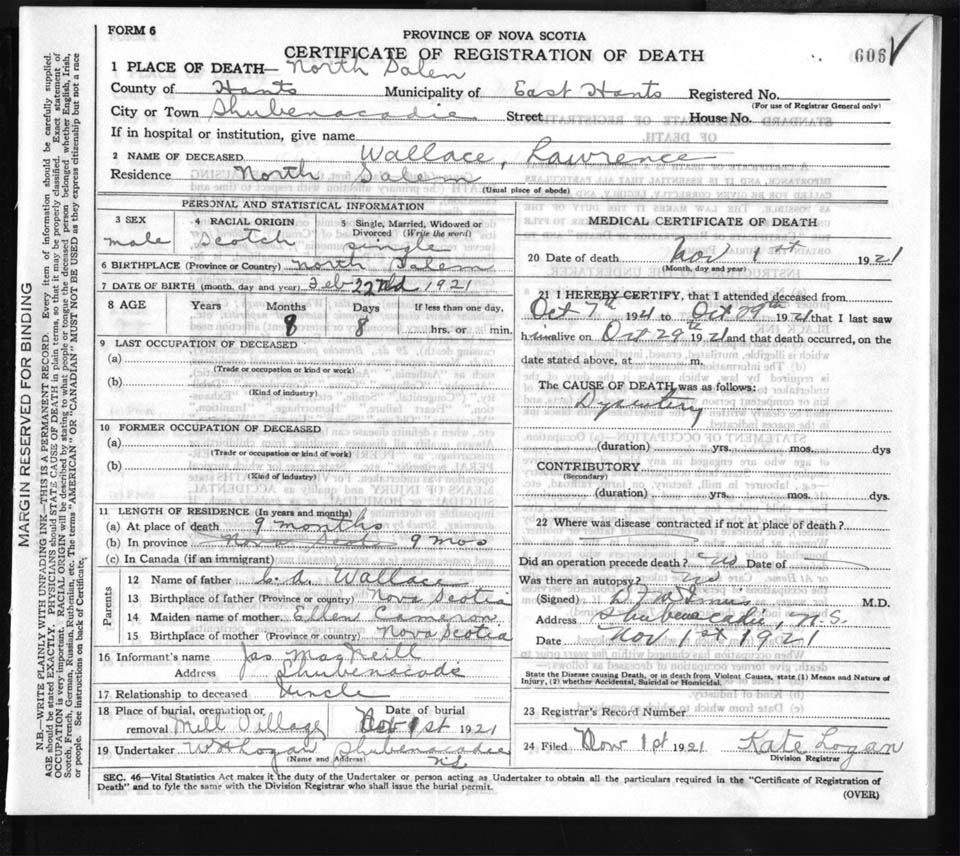 FORM 6
PROVINCE OF NOVA SCOTIA
CERTIFICATE OF REGISTRATION OF DEATH
606
1 PLACE OF DEATH— North Salem
County of Hants Municipality of East Hants Registered No.
(For use of Registrar General only)
City or Town Shubenacadie Street House No.
If in hospital or institution, give name
2 NAME OF DECEASED Wallace, Lawrence
Residence North Salem
(Usual place of abode)
PERSONAL AND STATISTICAL INFORMATION
3 SEX 4 RACIAL ORIGIN 5 Single, Married, Widowed or Divorced (Write the word)
male Scotch single
6 BIRTHPLACE (Province or Country) North Salem
7 DATE OF BIRTH (month, day and year) Feb 22nd 1921
8 AGE Years Months Days If less than one day,
8 8 hrs. or min.
9 LAST OCCUPATION OF DECEASED
(a)
(Trade or occupation or kind or work)
(b)
(Kind of industry)
10 FORMER OCCUPATION OF DECEASED
(a)
(Trade or occupation or kind of work)
(b)
(Kind of industry)
11 LENGTH OF RESIDENCE (In years and months)
(a) At place of death 9 months
(b) In province Nova Scotia 9 mos
(c) In Canada (if an immigrant)
Parents
12 Name of father C. A. Wallace
13 Birthplace of father (Province or country) Nova Scotia
14 Maiden name of mother Ellen Cameron
15 Birthplace of mother (Province or country) Nova Scotia
16 Informant's name Jas MacNeill
Address Shubenacade
17 Relationship to deceased Uncle
18 Place of burial, cremation or removal Mill Village Date of burial Nov 1st 1921
19 Undertaker W H Logan Shubenacadie
(Name and Address) N.S.
MEDICAL CERTIFICATE OF DEATH
20 Date of death Nov 1st 1921
(Month, day and year)
21 I HEREBY CERTIFY, that I attended deceased from
Oct 7th 1921 to Oct 29th 1921 that I last saw
him alive on Oct 29th 1921 and that death occurred, on the
date stated above, at m.
The CAUSE OF DEATH was as follows:
Dysentery
(duration) yrs. mos. dys
CONTRIBUTORY
(Secondary)
(duration) yrs. mos. dys.
22 Where was disease contracted if not at place of death?
Did an operation precede death? no Date of
Was there an autopsy? no
(Signed) M.D.
Address Shubenacadie, N.S.
Date Nov 1st 1921
State the Disease causing Death, or in death from Violent Causes, state (1) Means and Nature of Injury, (2) whether Accidental, Suicidal or Homicidal.
23 Registrar's Record Number
24 Filed Nov 1st 1921 Kate Logan
Division Registrar
SEC. 46—Vital Statistics Act makes it the duty of the Undertaker or person acting as Undertaker to obtain all the particulars required in the "Certificate of Registration of
Death" and to fyle the same with the Division Registrar who shall issue the burial permit.
(OVER)
MARGIN RESERVED FOR BINDING
N.B.—WRITE PLAINLY WITH UNFADING INK—THIS IS A PERMANENT RECORD. Every item of information should be carefully supplied.
AGE should be stated EXACTLY. PHYSICIANS should STATE CAUSE OF DEATH in plain terms, so that it may be properly classified. Exact statement of
OCCUPATION is very important. RACIAL ORIGIN will be described by stating to what people or tongue the deceased person belonged whether English, Irish,
Scotch, French, German, Russian, Ruthenian, etc. The terms "AMERICAN" or "CANADIAN" MUST NOT BE USED as they express citizenship but not a race
or people. See instructions on back of Certificate.